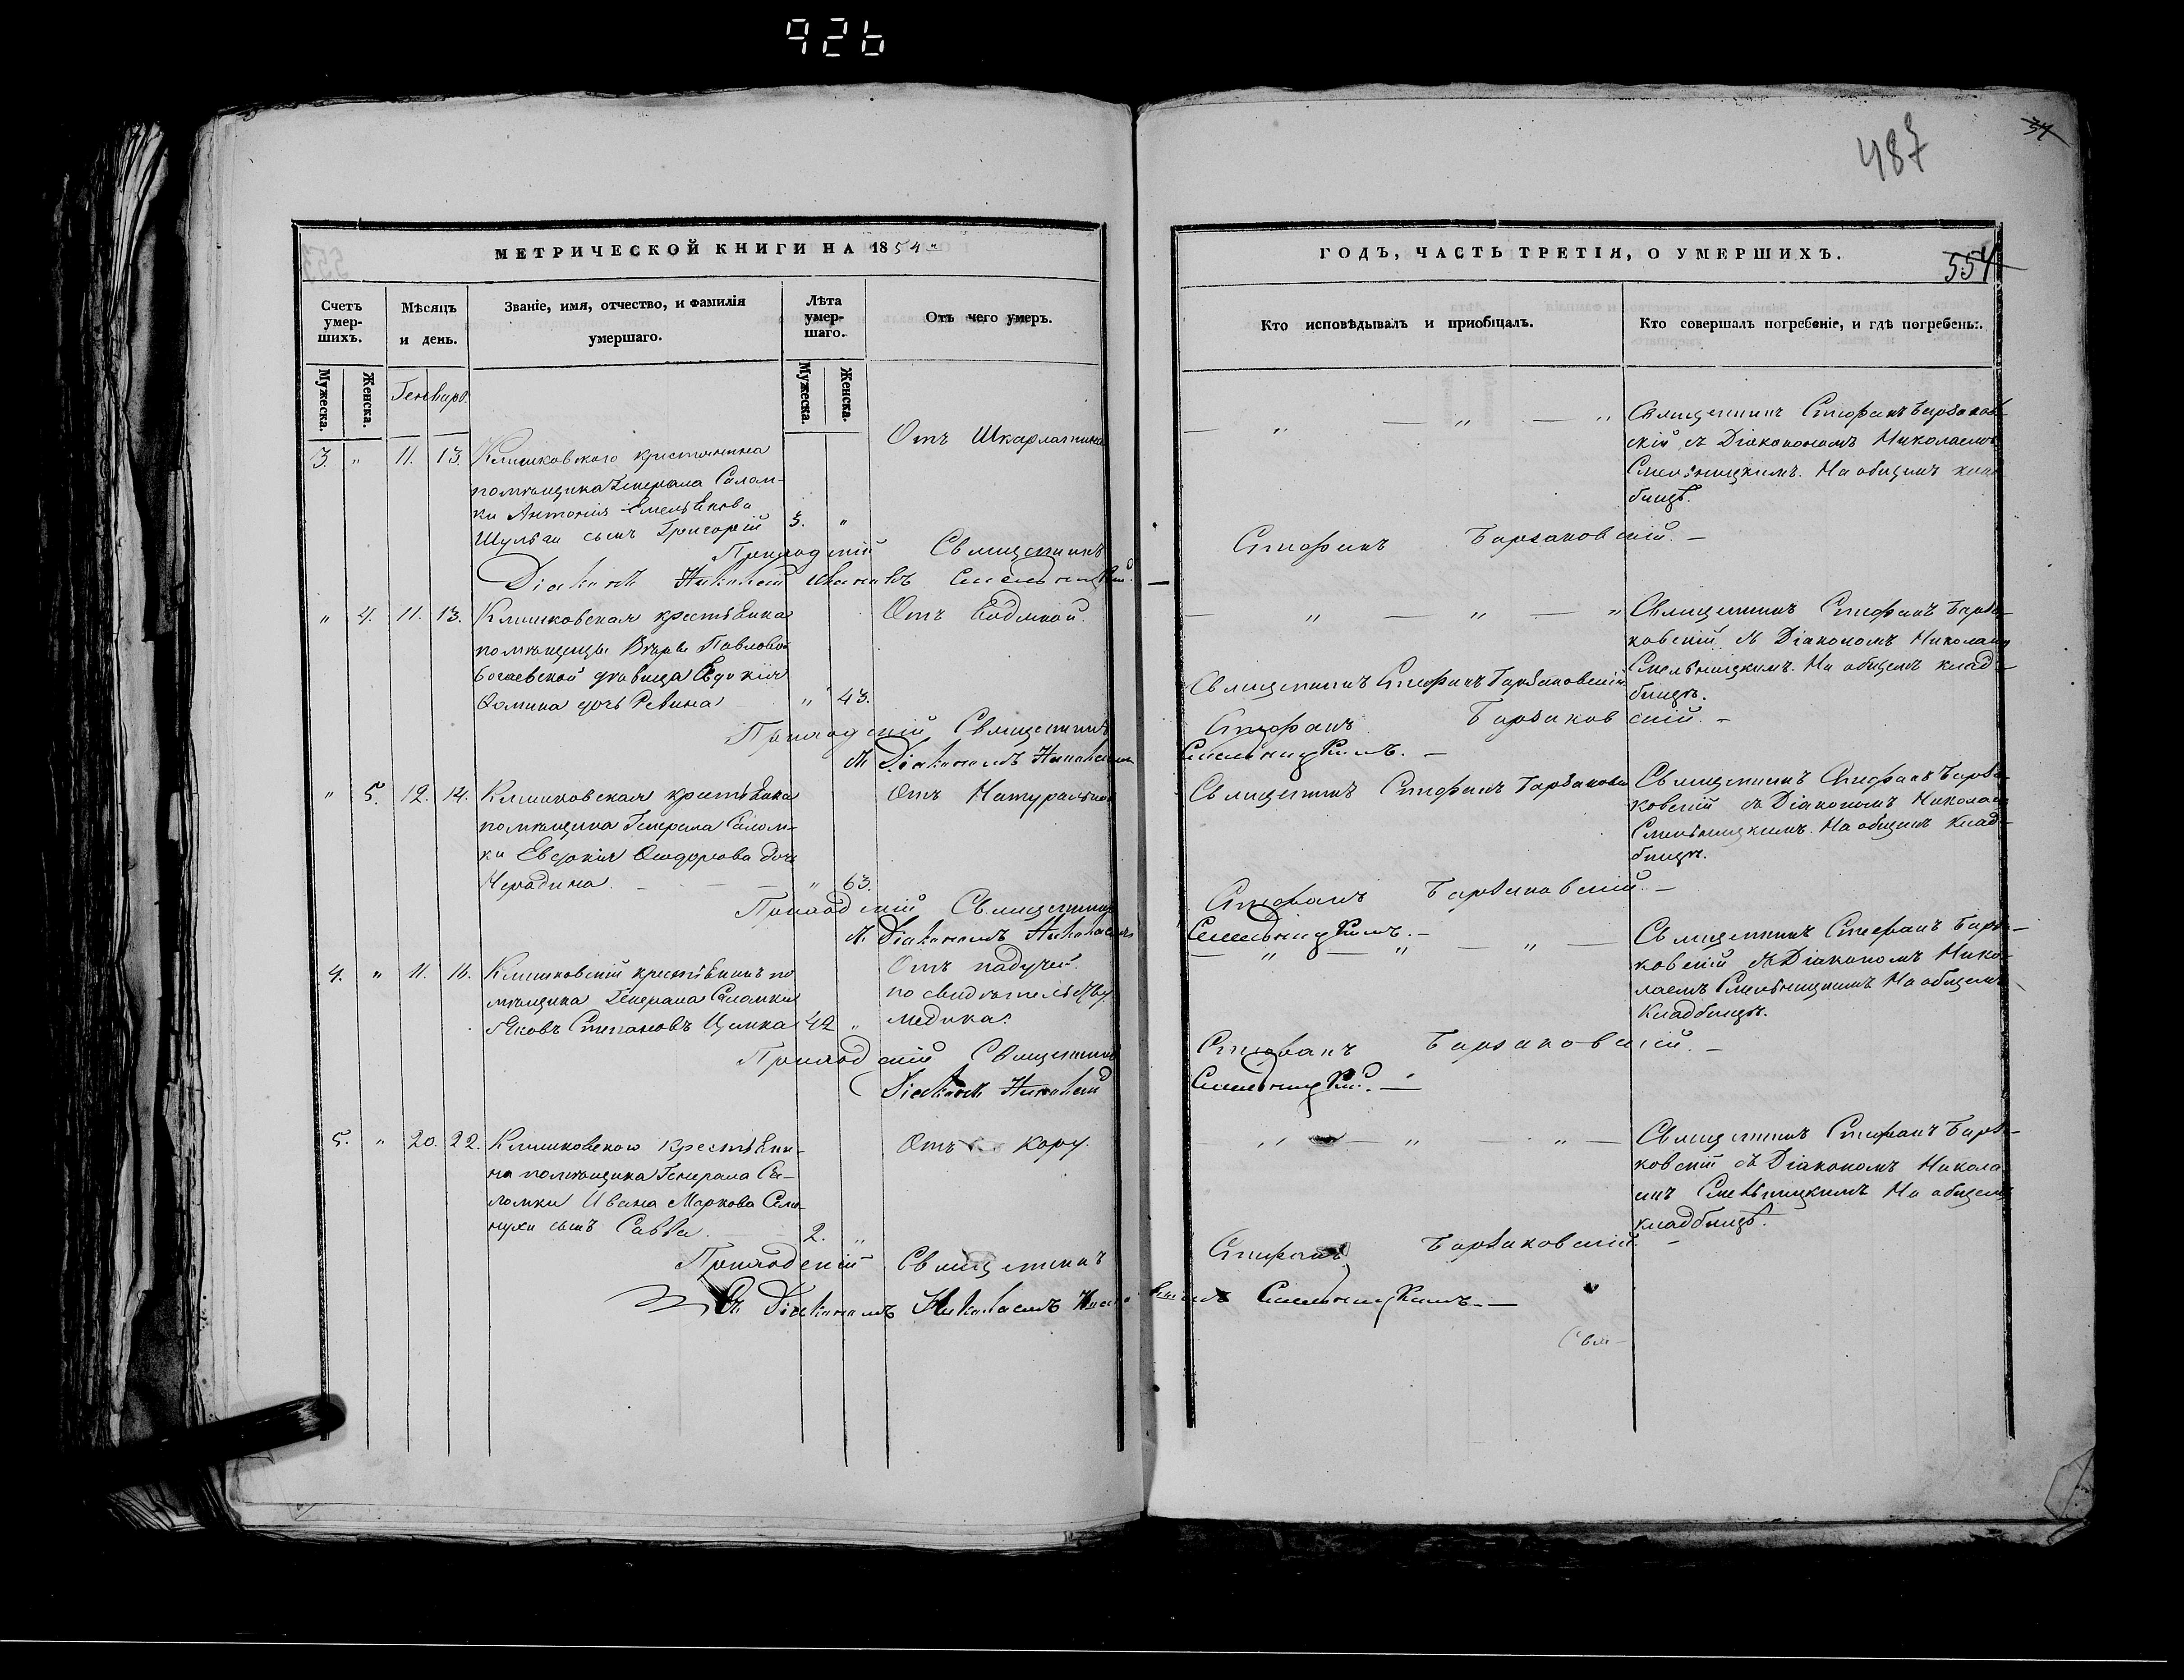 926
487
34
МЕТРИЧЕСКОЙ КНИГИ НА 1854
ГОДЪ, ЧАСТЬ ТРЕТІЯ, О УМЕРШИХЪ.
554
Счетъ умер-шихъ.
Мѣсяцъ и день.
Званіе, имя, отчество, и фамилія умершаго.
Лѣта умер-шаго.
Отъ чего умеръ.
Кто исповѣдывалъ и пріобщалъ.
Кто совершалъ погребеніе, и гдѣ погребены.
Мужеска.
Женска.
Генварь.
Мужеска.
Женска.
3. " 11. 13. Клишковского крестянина
помѣщика Генерала Салом-
ки Антонія Емельянова
Шульги сынъ Григорій 3. "
Отъ Шкарлатины
— " — " — "
Священникъ Стефанъ Барзаков-
скій съ Діакономъ Николаемъ
Смельницкимъ. На общемъ клад-
бищѣ.
Приходскій Священникъ Стефанъ Барзаковскій. —
Діаконъ Николай Ивановъ Смельницкій. —
" 4. 11. 13. Клишковская крестьянка
помѣщицы Вѣры Павловой
Богаевской дѣвица Евдокія
Фомина дочь Ревина " 43.
Отъ Водяной.
— " — " — "
Священникъ Стефанъ Барзаковскій
Священникъ Стефанъ Барза-
ковскій съ Діакономъ Николаемъ
Смельницкимъ. На общемъ клад-
бищѣ.
Приходскій Священникъ Стефанъ Барзаковскій. —
съ Діакономъ Николаемъ Смельницкимъ. —
" 5. 12. 14. Клишковская крестьянка
помѣщика Генерала Салом-
ки Евдокія Феодорова дочь
" 63.
Отъ Натуральной
Священникъ Стефанъ Барзаковскій
Священникъ Стефанъ Барза-
ковскій съ Діакономъ Николаемъ
Смельницкимъ. На общемъ клад-
бищѣ.
Приходскій Священникъ Стефанъ Барзаковскій. —
съ Діакономъ Николаемъ Смельницкимъ. —
4. " 11. 16. Клишковскій крестьянинъ по-
мѣщика Генерала Саломки
Яковъ Степановъ Цымка 42 "
Отъ падучей.
по свидѣтельству
медика.
— " — " — " —
Священникъ Стефанъ Барза-
ковскій съ Діакономъ Нико-
лаемъ Смельницкимъ На общемъ
Кладбищѣ.
Приходскій Священникъ Стефанъ Барзаковскій. —
Діаконъ Николай Смельницкій. —
5. " 20. 22. Клишковского крестьяни-
на помѣщика Генерала Са-
ломки Ивана Маркова Сем-
нухи сынъ Савва. 2. "
Отъ кору.
" — " " —
Священникъ Стефанъ Барза-
ковскій съ Діакономъ Никола-
емъ Смельницкимъ На общемъ
кладбищѣ.
Приходскій Священникъ Стефанъ Барзаковскій. —
Съ Діакономъ Николаемъ Смельницкимъ. —
Свя-